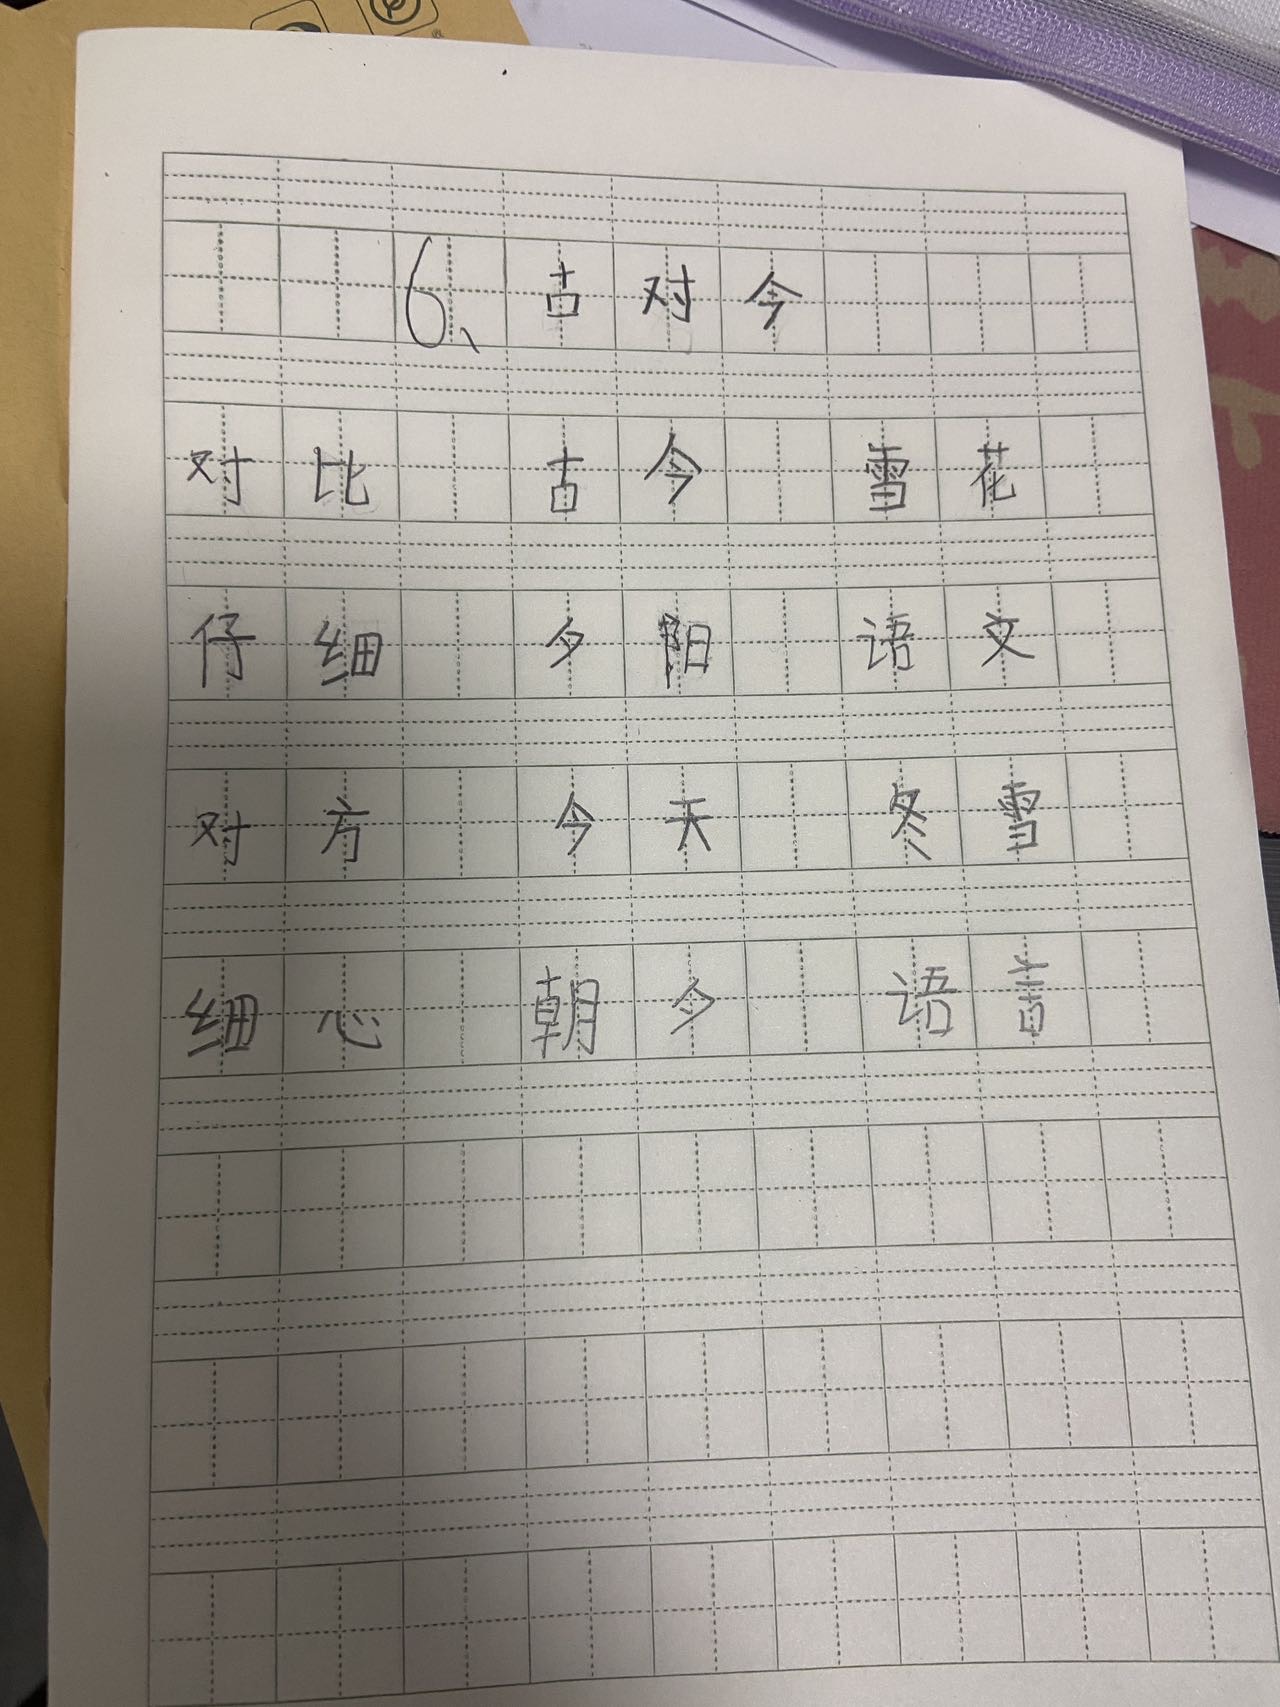 6、古对今
对比 古今 雪花
仔细 夕阳 语文
对方 今天 冬雪
细心 朝夕 语言